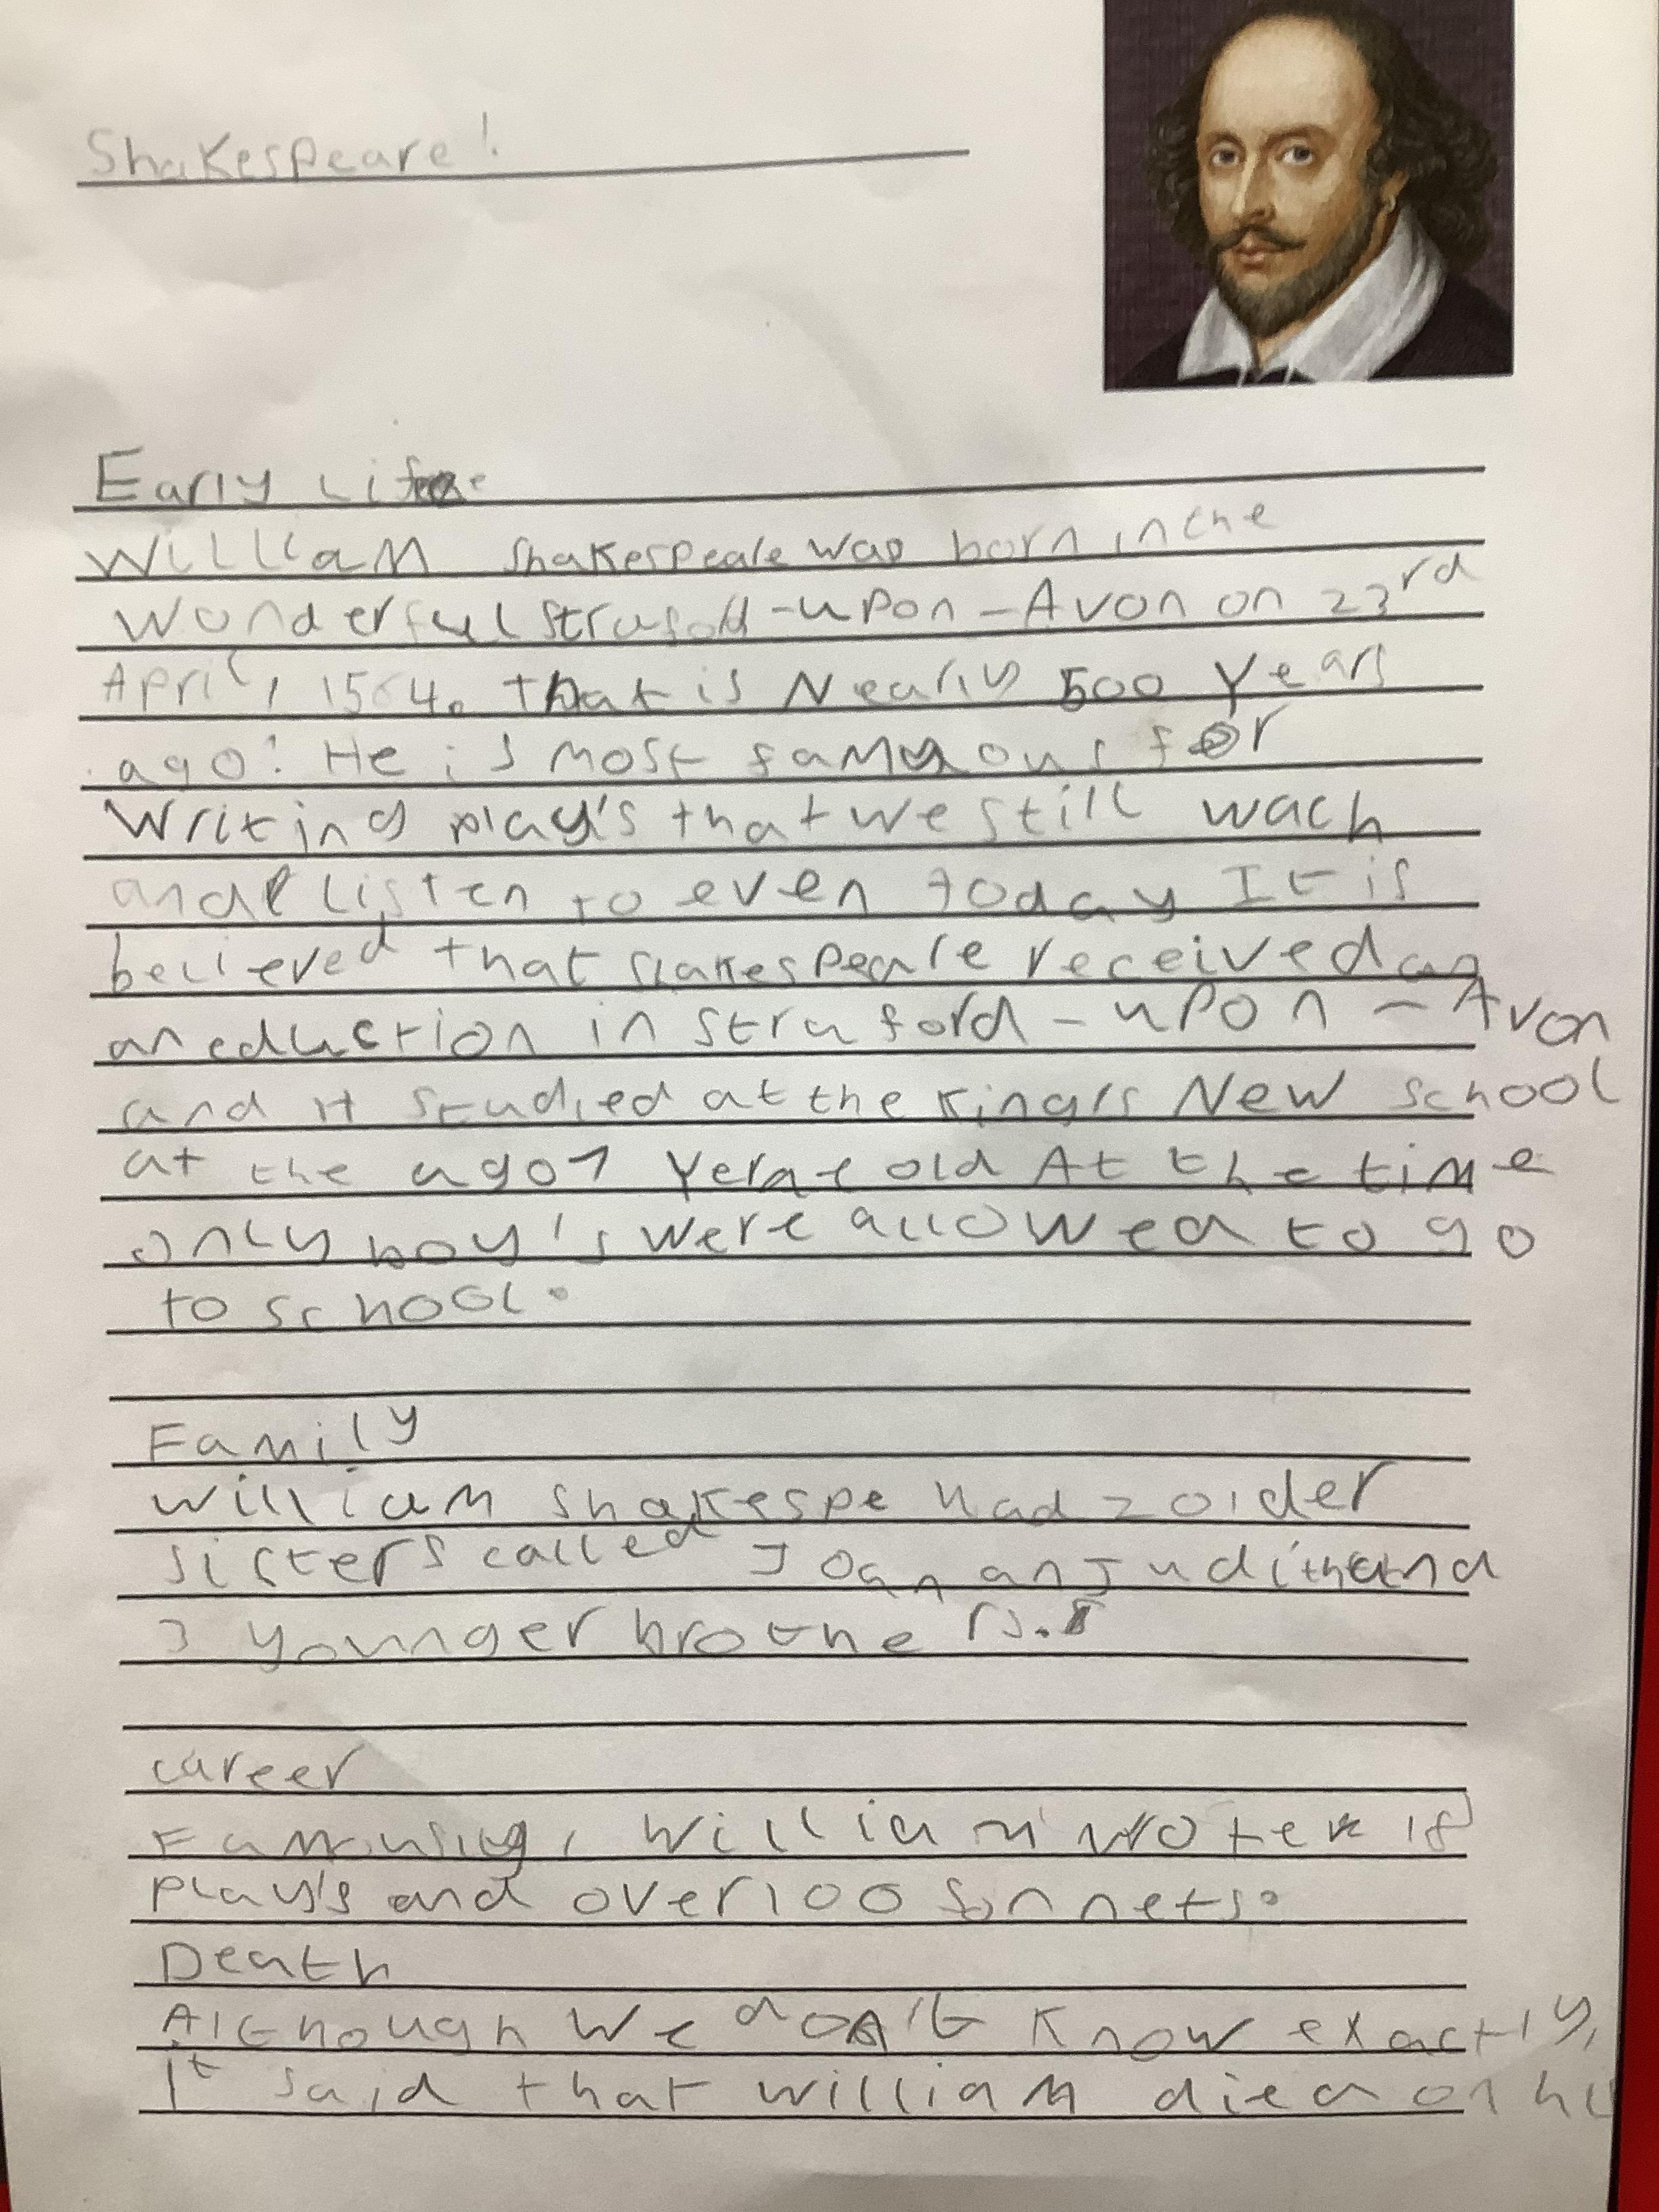 Shakespeare!
Early Life
William Shakespeare was born in the
wonderful Straford-upon-Avon on 23rd
April, 1564. That is Nearly 500 Years
ago! He is most famous for
Writing play's that we still wach
and listen to even today It is
believed that Shakespeare received an
an eduction in Straford-upon-Avon
and studied at the King's New School
at the ago 7 old At the time
only boy's were allowed to go
to school.
Family
William Shakespe had 2 older
sisters called Joan an Judith and
3 younger brothers.
career
Famously, William 18
play's and over 100 Sonnets.
Death
Although We don't Know exactly,
It said that William died on